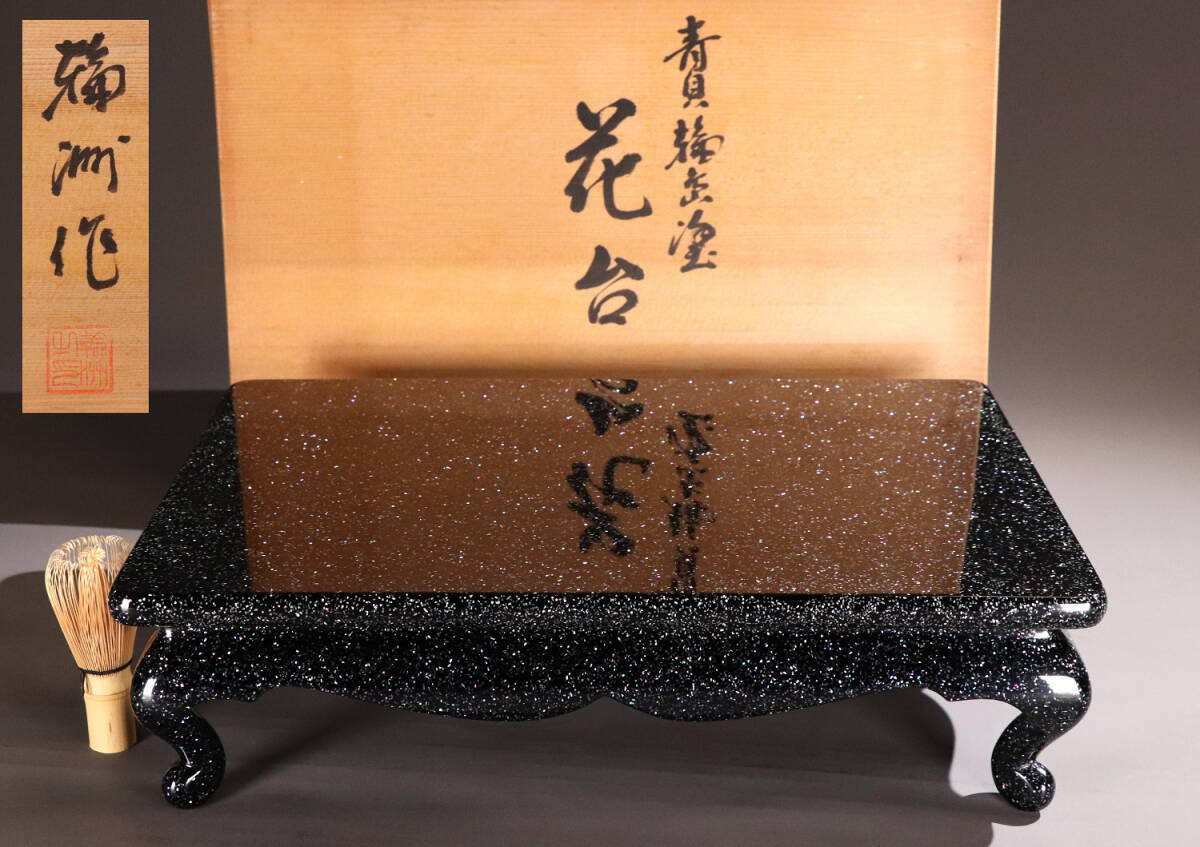 青貝輪島塗
花台
輪洲作